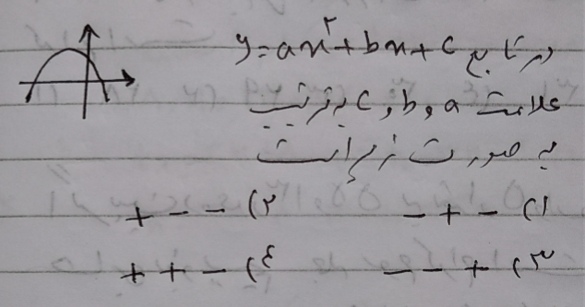 در تابع y=ax²+bx+c
علامت a و b و c به ترتیب
به صورت زیر است
۱) - + -    ۲) - - +
۳) + - -    ٤) - + +